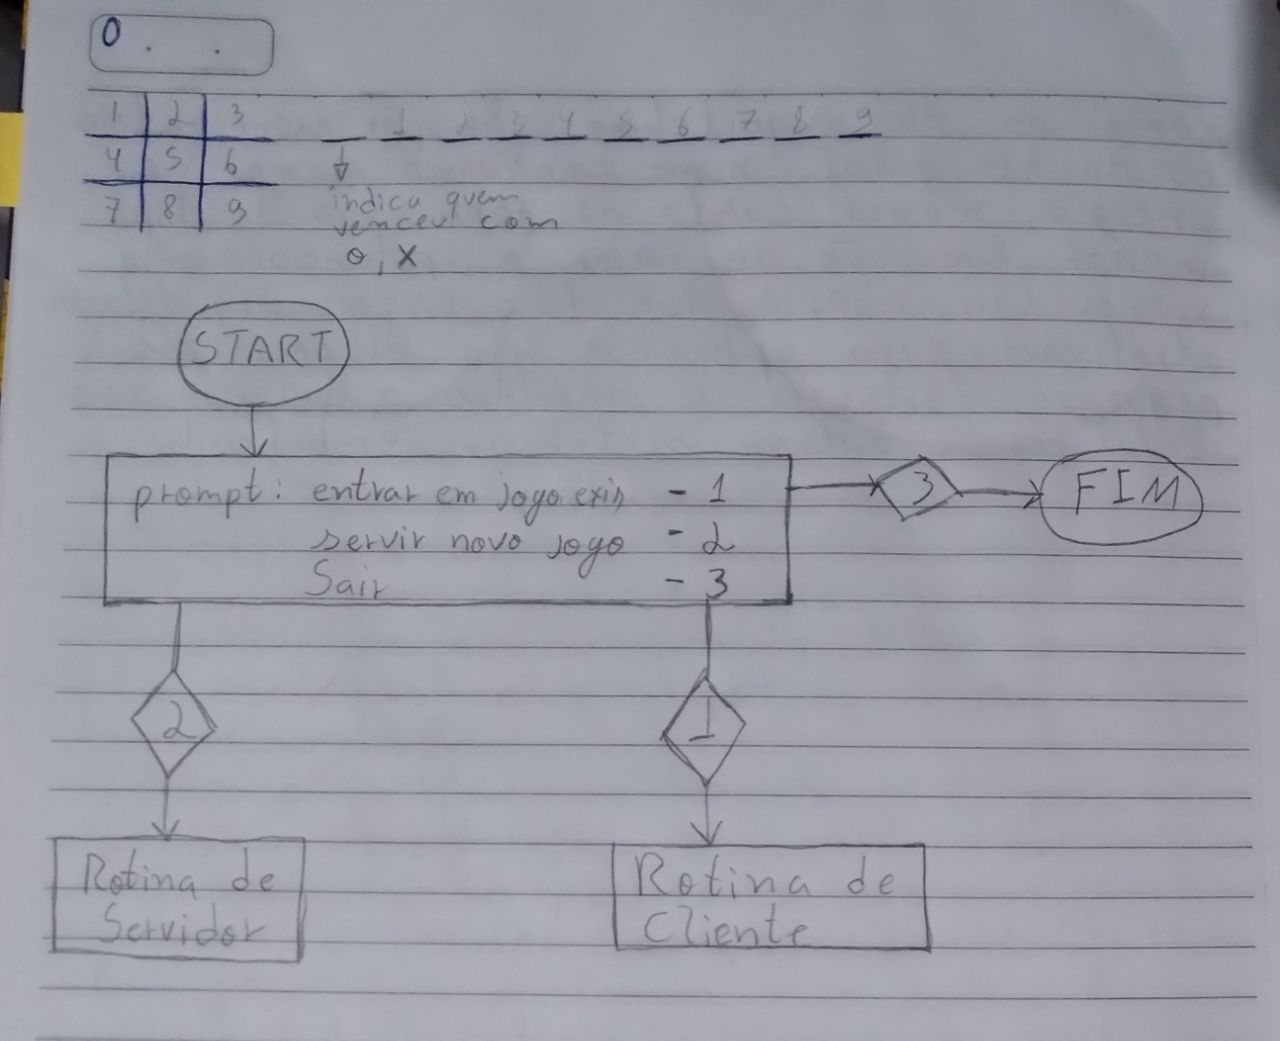 0 . .
1 2 3
4 5 6
7 8 9
_ 1 2 3 4 5 6 7 8 9
indica quem
venceu com
o, X
START
prompt: entrar em jogo exis - 1
servir novo jogo - 2
Sair - 3
3
FIM
2
1
Rotina de
Servidor
Rotina de
Cliente